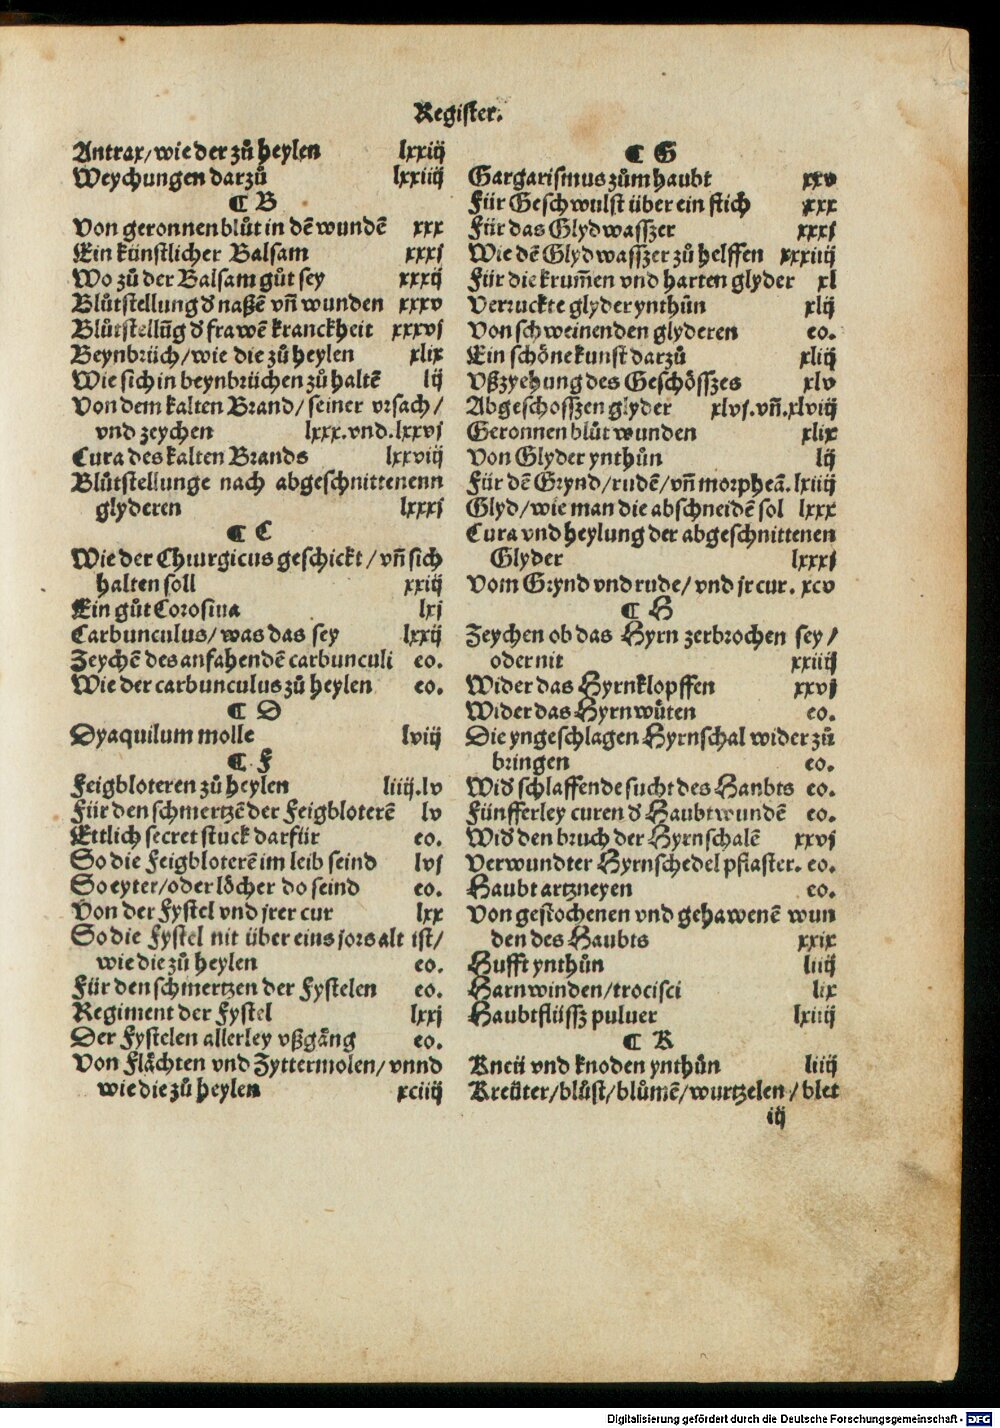 Register.
Antrax/wie der zů heylen lxxiij
Weychungen darzů lxxiiij
¶ B
Von geronnen blůt in dē wundē xxx
Ein künstlicher Balsam xxxj
Wo zů der Balsam gůt sey xxxij
Blůtstellung d̕ naßē vñ wunden xxxv
Blůtstellūg d̕ frawē kranckheit xxxvj
Beynbrüch/wie die zů heylen xlix
Wie sich in beynbrüchen zů haltē lij
Von dem kalten Brand/seiner vrsach/
vnd zeychen lxxx.vnd.lxxvj
Cura des kalten Brands lxxviij
Blůtstellunge nach abgeschnittenenn
glyderen lxxxj
¶ C
Wie der Chirurgicus geschickt/vñ sich
halten soll xxiij
Ein gůt Corosiua lxj
Carbunculus/was das sey lxxij
Zeychē des anfahendē carbunculi eo.
Wie der carbunculus zů heylen eo.
¶ D
Dyaquilum molle lviij
¶ F
Feigbloteren zů heylen liiij.lv
Für den schmertzē der Feigbloterē lv
Ettlich secret stuck darfür eo.
So die Feigbloterē im leib seind lvj
So eyter/oder löcher do seind eo.
Von der Fystel vnd jrer cur lxx
So die Fystel nit über eins jors alt ist/
wie die zů heylen eo.
Für den schmertzen der Fystelen eo.
Regiment der Fystel lxxj
Der Fystelen allerley vßgäng eo.
Von Flächten vnd Zyttermolen/vnnd
wie die zů heylen xciiij
¶ G
Gargarismus zům haubt xxv
Für Geschwulst über ein stich xxx
Für das Glydwasszer xxxj
Wie dē Glydwasszer zů helffen xxxiiij
Für die krum̃en vnd harten glyder xl
Verruckte glyder ynthůn xlij
Von schweinenden glyderen eo.
Ein schöne kunst darzů xliij
Vßzyehung des Geschösszes xlv
Abgeschosszen glyder xlvj.vñ.xlviij
Geronnen blůt wunden xlix
Von Glyder ynthůn lij
Für dē Grynd/rudē/vñ morpheā. lxiiij
Glyd/wie man die abschneidē sol lxxx
Cura vnd heylung der abgeschnittenen
Glyder lxxxj
Vom Grynd vnd rude/vnd jr cur. xcv
¶ H
Zeychen ob das Hyrn zerbrochen sey/
oder nit xxiiij
Wider das Hyrnklopffen xxvj
Wider das Hyrnwůten eo.
Die yngeschlagen Hyrnschal wider zů
bringen eo.
Wid̕ schlaffende sucht des Hanbts eo.
Fünfferley curen d̕ Haubtwundē eo.
Wid̕ den bruch der Hyrnschalē xxvj
Verwundter Hyrnschedel pflaster. eo.
Haubt artzneyen eo.
Von gestochenen vnd gehawenē wun
den des Haubts xxix
Hufft ynthůn liiij
Harnwinden/trocisci lix
Haubtflüssz puluer lxiiij
¶ K
Kneü vnd knoden ynthůn liiij
Kreüter/blůst/blůmē/wurtzelen/blet
iij
Digitalisierung gefördert durch die Deutsche Forschungsgemeinschaft - DFG